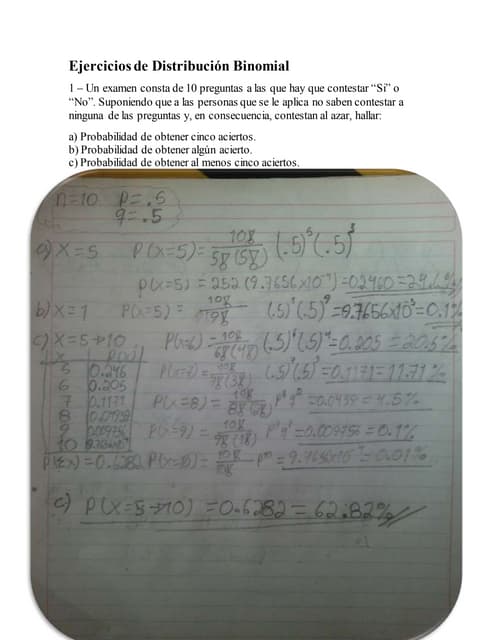 Ejercicios de Distribución Binomial
1 – Un examen consta de 10 preguntas a las que hay que contestar “Sí” o
“No”. Suponiendo que a las personas que se le aplica no saben contestar a
ninguna de las preguntas y, en consecuencia, contestan al azar, hallar:
a) Probabilidad de obtener cinco aciertos.
b) Probabilidad de obtener algún acierto.
c) Probabilidad de obtener al menos cinco aciertos.
n=10 p=.5
q=.5
a) X=5 P(X=5)= 10! / 5!(5!) (.5)⁵(.5)⁵
p(x=5) = 252 =0.2460=24.6%
b) x=1 P(x=5) = (.5)¹(.5)⁹ =0.1%
c) X=5→10 P(x=6) = 10! / 6!(4!) (.5)⁶(.5)⁴=0.205=20.5%
X P(X)
5 0.246
6 0.205
7 0.1171
8
9
10
P(x=7)= 10! / 7!(3!) (.5)⁷(.5)³=0.1171=11.71%
P(x=8) = p⁸q² =0.0439=4.5%
P(x=9) = p⁹q¹=0.009756=0.1%
P(≤x)=0.6282 P(x=10)= p¹⁰ =0.01%
c) P(x=5→10) =0.6282=62.82%